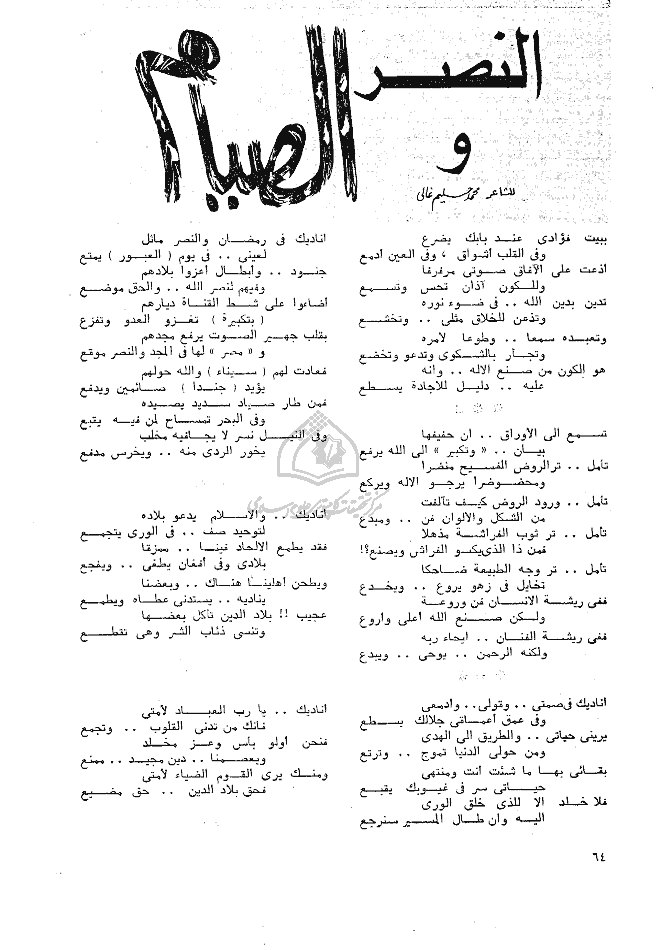 النصر
و
الصيام
للشاعر محمد سليم غالى
ببيت فؤادى عند بابك يضرع
وفى القلب أشواق ، وفى العين أدمع
اذعت على الآفاق صوتى مرفرفا
وللكون آذان تحس وتسمع
تدين بدين الله .. فى ضوء نوره
وتذعن للخلاق مثلى .. وتخشع
وتعبده سمعا .. وطوعا لأمره
وتجأر بالشكوى وتدعو وتخضع
هو الكون من صنع الاله .. وانه
عليه .. دليل للاجادة يسطع
تسمع الى الأوراق .. ان حفيفها
بيان .. « وتكبير » الى الله يرفع
تأمل .. تر الروض الفسيح منضرا
ومخضوضرا يرجو الاله ويركع
تأمل .. ورود الروض كيف تآلفت
من الشكل والألوان فن .. ومبدع
تأمل .. تر ثوب الفراشة مذهلا
فمن ذا الذى يكسو الفراش ويصنع؟!
تأمل .. تر وجه الطبيعة ضاحكا
تخايل فى زهو يروع .. ويخدع
ففى ريشة الانسان فن وروعة
ولكن صنع الله أعلى وأروع
ففى ريشة الفنان .. ايحاء ربه
ولكنه الرحمن .. يوحى .. ويبدع
اناديك فى صمتى .. وقولى.. وأدمعى
وفى عمق أعماقى جلالك يسطع
يرينى حياتى .. والطريق الى الهدى
ومن حولى الدنيا تموج .. وترتع
بقائى بها ما شئت أنت ومنتهى
حياتى سر فى غيوبك يقبع
فلا خلد الا للذى خلق الورى
اليه وان طال المسير سنرجع
اناديك فى رمضان والنصر ماثل
لعينى .. فى يوم ( العبور ) يمتع
جنود .. وأبطال أعزوا بلادهم
وفيهم لنصر الله .. والحق موضع
أضاءوا على شط القناة ديارهم
( بتكبيرة ) تغزو العدو وتفزع
بقلب جهير الصوت يرفع مجدهم
و « مصر » لها فى المجد والنصر موقع
فعادت لهم ( سيناء ) والله حولهم
يؤيد ( جندا ) صائمين ويدفع
فمن طار صياد سديد يصيده
وفى البحر تمساح لمن فيه يتبع
وفى النيل نسر لا يجافيه مخلب
يخور الردى منه .. ويخرس مدفع
اناديك .. والاسلام يدعو بلاده
لتوحيد صف .. فى الورى يتجمع
فقد يطمع الالحاد فينا .. ممزقا
بلادى وفى أفغان يطغى .. ويفجع
ويطحن أهلينا هناك .. وبعضنا
يناديه .. يستدنى عطاه ويطمع
عجيب !! بلاد الدين تأكل بعضها
وتنسى ذئاب الشر وهى تقطع
اناديك .. يا رب العباد لأمتى
فانك من تدنى القلوب .. وتجمع
فنحن أولو بأس وعز مخلد
ويعصمنا .. دين مجيد .. ممنع
ومنك يرى القوم الضياء لأمتى
فحق بلاد الدين .. حق مضيع
٦٤